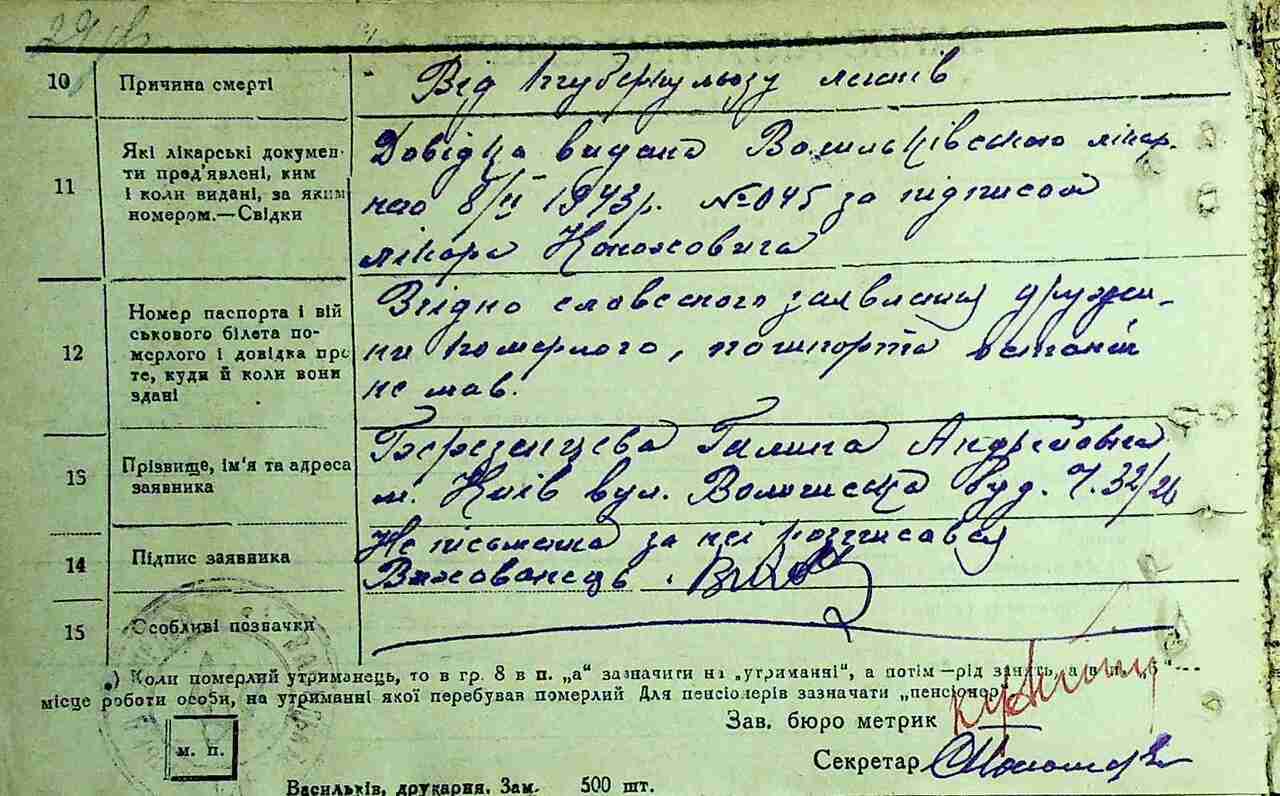 10 Причина смерті Від туберкульозу легенів
11 Які лікарські докумен-
ти пред'явлені, ким
і коли видані, за яким
номером.—Свідки
Довідка видана Васильківською лікар.
нею 8/II 1943р. №045 за підписом
лікаря
12 Номер паспорта і вій
ськового білета по-
мерлого і довідка про
те, куди й коли вони
здані
Згідно словесного заявлення дружи-
ни померлого, пашпорта останній
не мав.
13 Прізвище, ім'я та адреса
заявника
Березанцева Галина Андреевна
м. Київ вул. буд. Ч. 32/26
14 Підпис заявника
Неписьменна за неї розписався
Вихованець.
15 Особливі позначки
*) Коли померлий утриманець, то в гр. 8 в п. „а“ зазначити на „утриманні“, а потім—рід занять, а в п. „б“—
місце роботи особи, на утриманні якої перебував померлий Для пенсіонерів зазначати „пенсіонер“
Зав. бюро метрик
Секретар
м. п.
Васильків, друкарня. Зам. 500 шт.